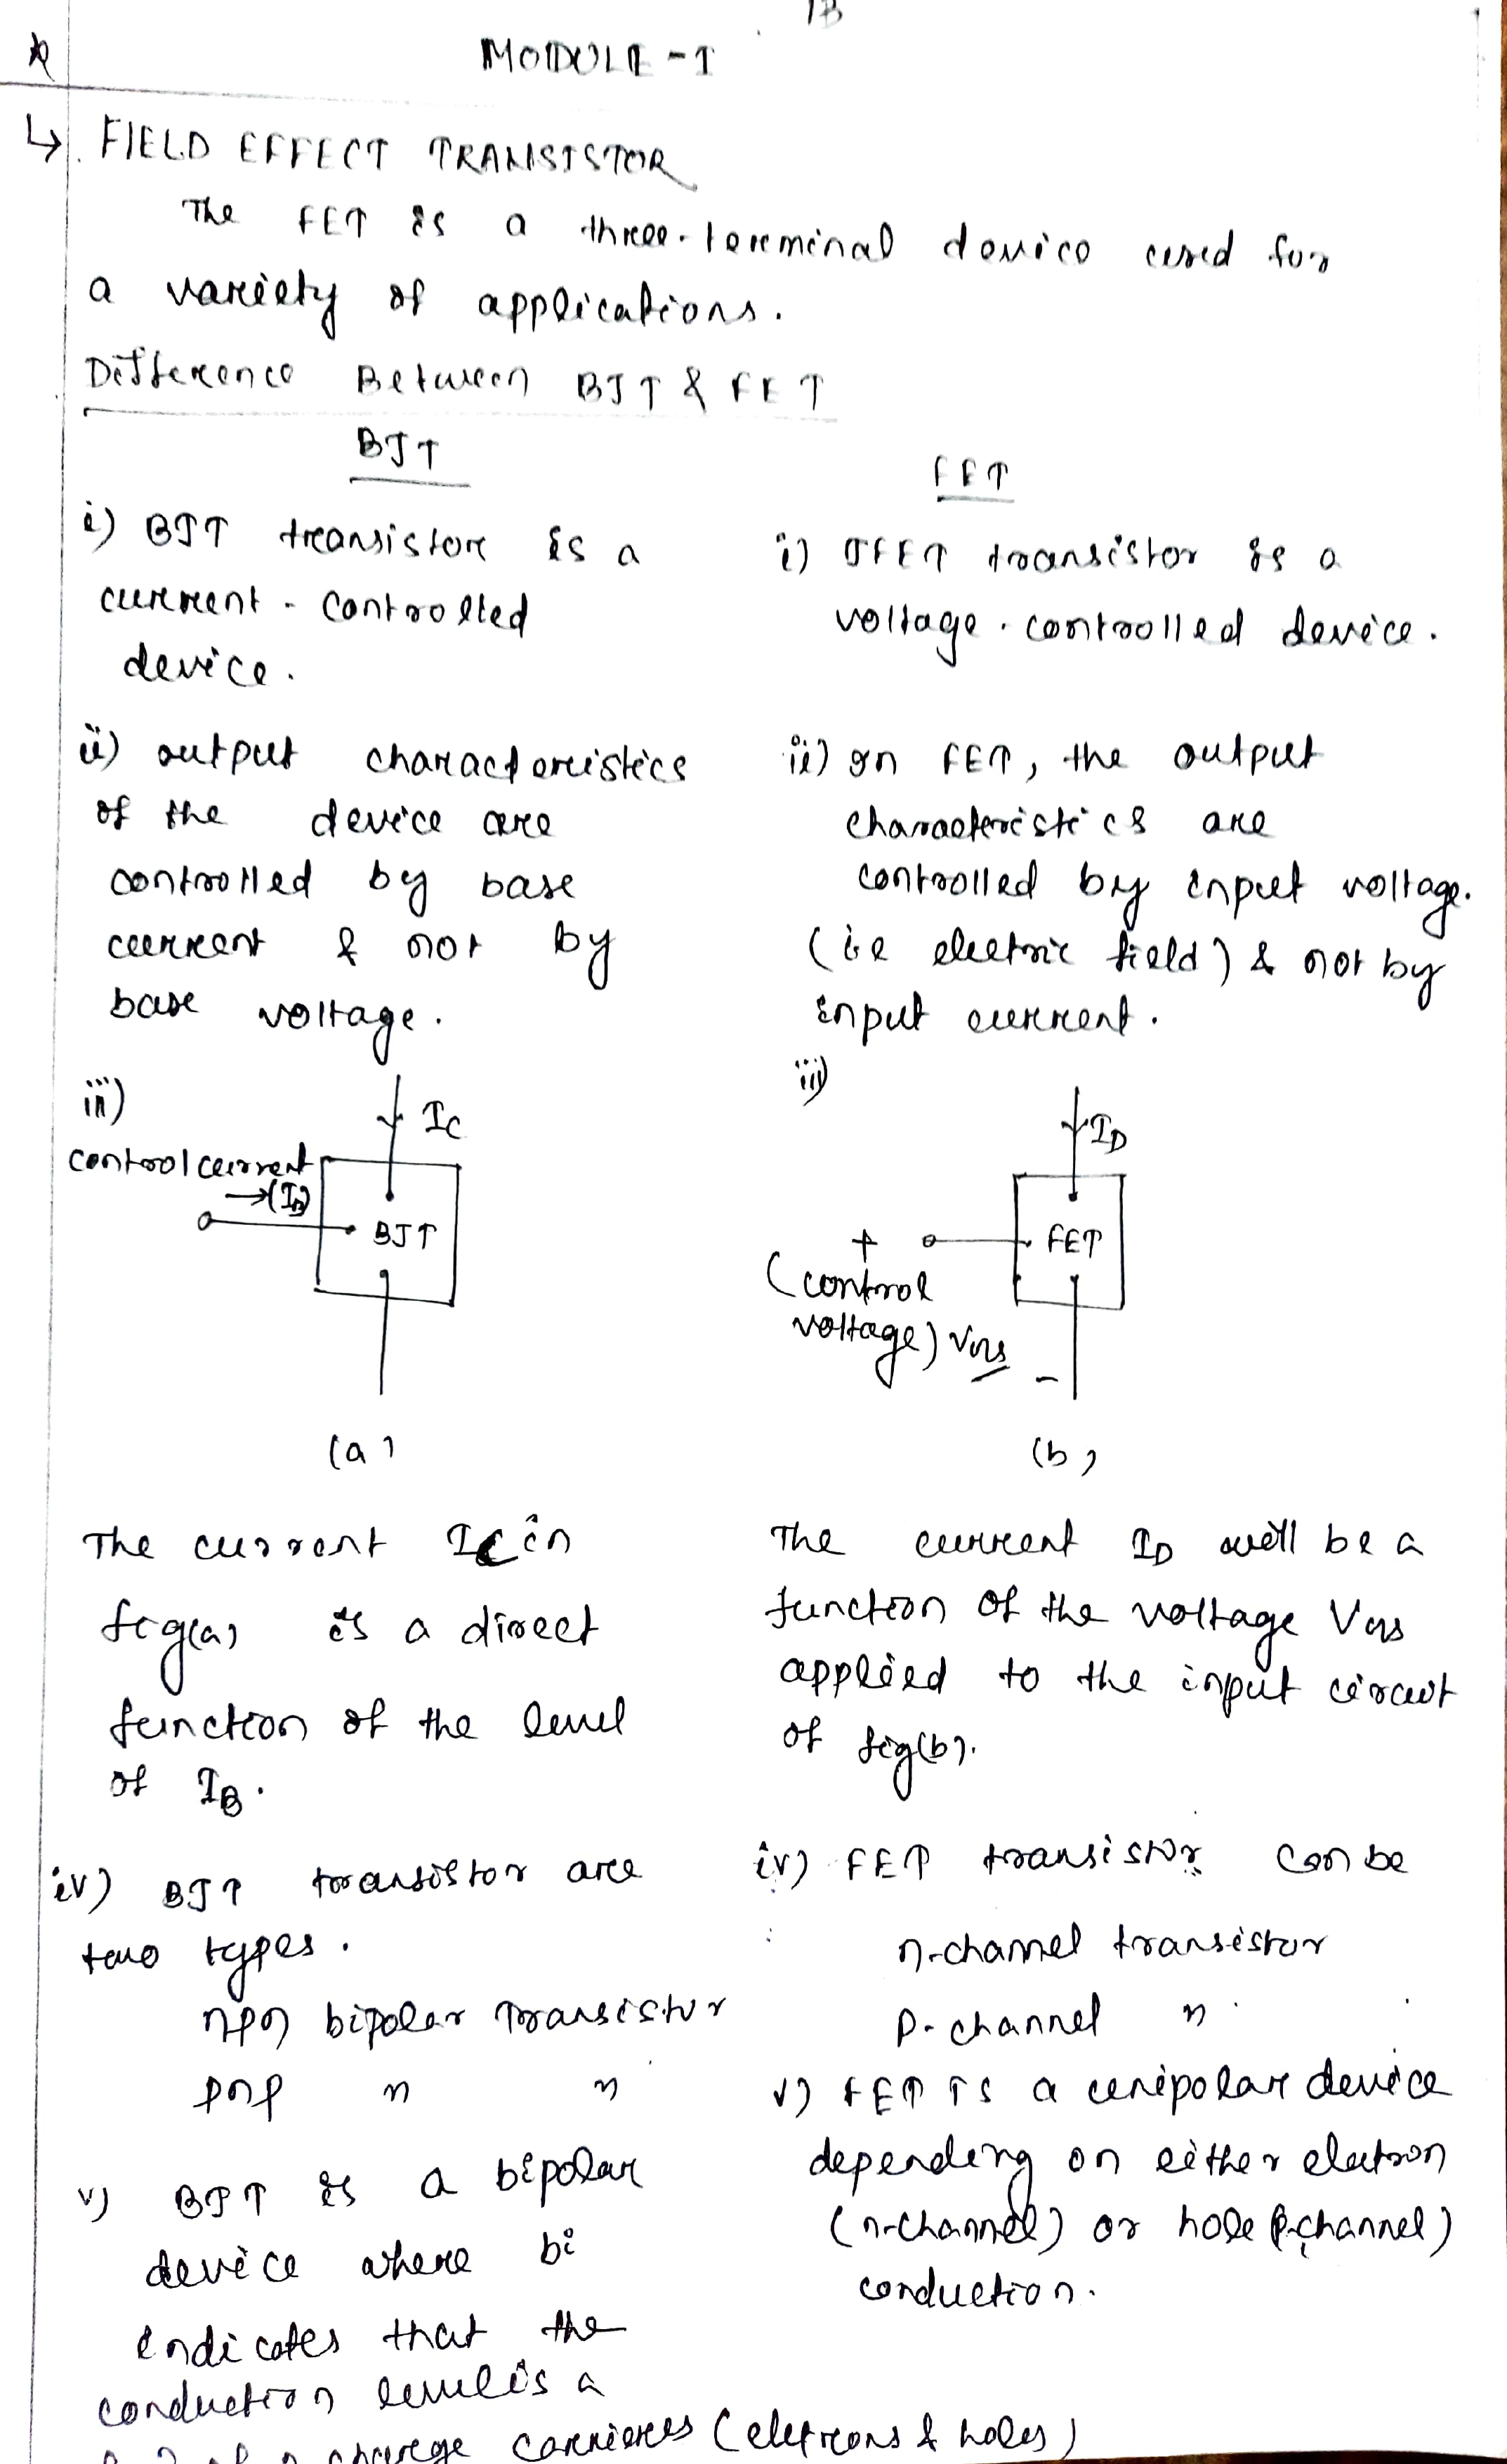 MODULE - I
↳. FIELD EFFECT TRANSISTOR
The FET is a three-terminal device used for
a variety of applications.
Difference Between BJT & FET
BJT
i) BJT transistor is a
current - controlled
device.
ii) output characteristics
of the device are
controlled by base
current & not by
base voltage.
iii)
IC
control current
→(IB)
BJT
(a)
The current IC in
fig(a) is a direct
function of the level
of IB.
iv) BJT transistor are
two types.
npn bipolar Transistor
pnp " "
v) BJT is a bipolar
device where bi
indicates that the
conduction level is a
charge carrieres (eletrons & holes)
FET
i) JFET transistor is a
voltage - controlled device.
ii) In FET, the output
characteristics are
controlled by input voltage.
(ie electric field) & not by
input current.
iii)
ID
+ FET
(control
voltage) VGS -
(b)
The current ID will be a
function of the voltage VGS
applied to the input circuit
of fig(b).
iv) FET transistor can be
n-channel transistor
p-channel "
v) FET is a unipolar device
depending on either electron
(n-channel) or hole (p-channel)
conduction.